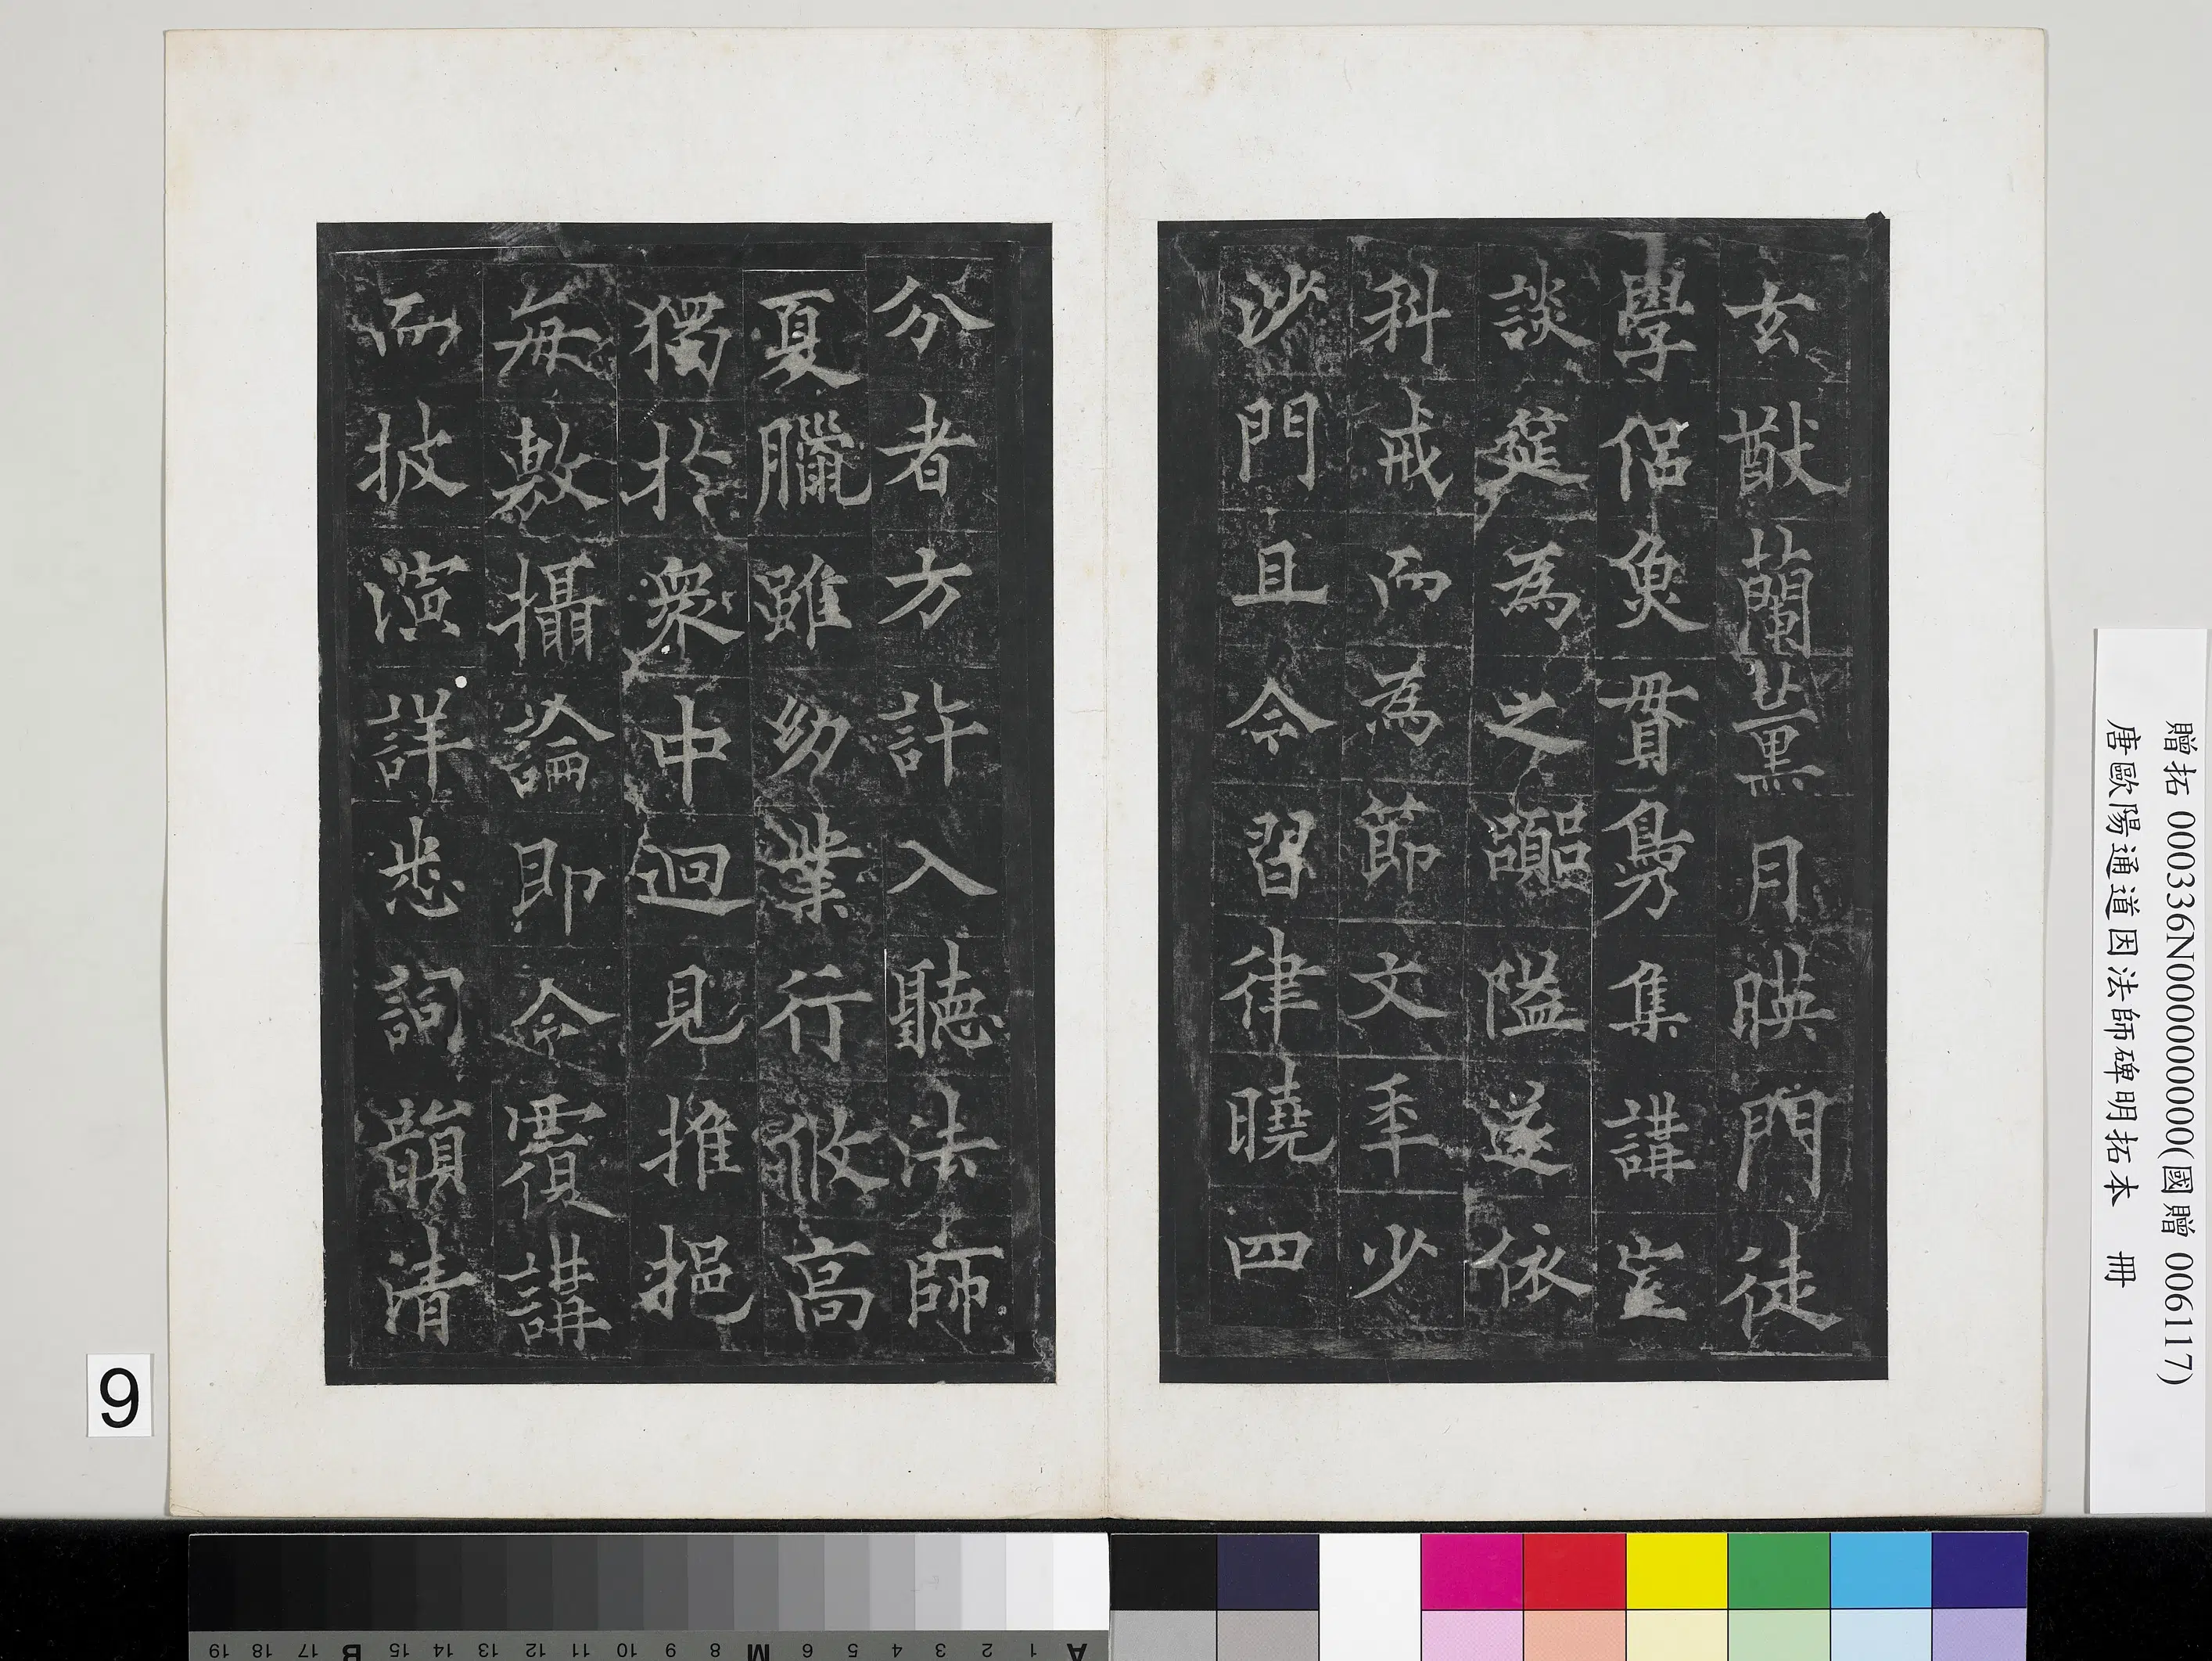 玄猷蘭薰月暎門徒
學侶魚貫鳧集講堂
談筵為之嚻隘遂依
科戒而為節文年少
沙門且令習律曉四
分者方許入聽法師
夏臘雖幼業行攸高
獨於衆中迥見推挹
每敷攝論即令覆講
而披演詳悉詞韻清
贈拓 000336N000000000(國贈 006117)
唐歐陽通道因法師碑明拓本 冊
9
A 1 2 3 4 5 6 M 8 9 10 11 12 13 14 15 B 17 18 19